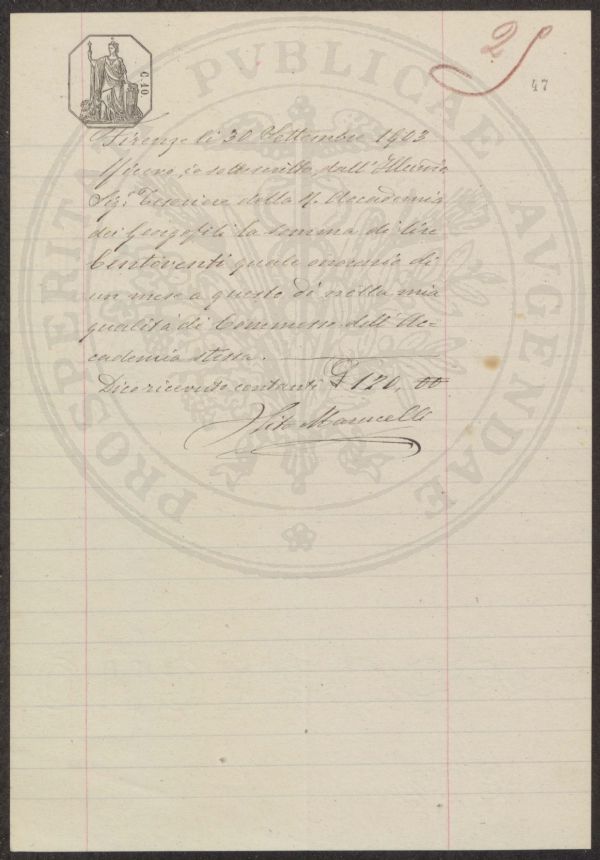 PROSPERITATI PVBLICAE AVGENDAE
C. 10
2
47
Firenze li 30 Settembre 1923
Ricevo, io sottoscritto, dall'Illustrio
Sigr. Tesoriere della R. Accademia
dei Georgofili la somma di lire
Centoventi quale onorario di
un mese a questo dì nella mia
qualità di Commesso dell'Ac-
cademia stessa.
Dico ricevute contanti £ 120, 00
Marucelli